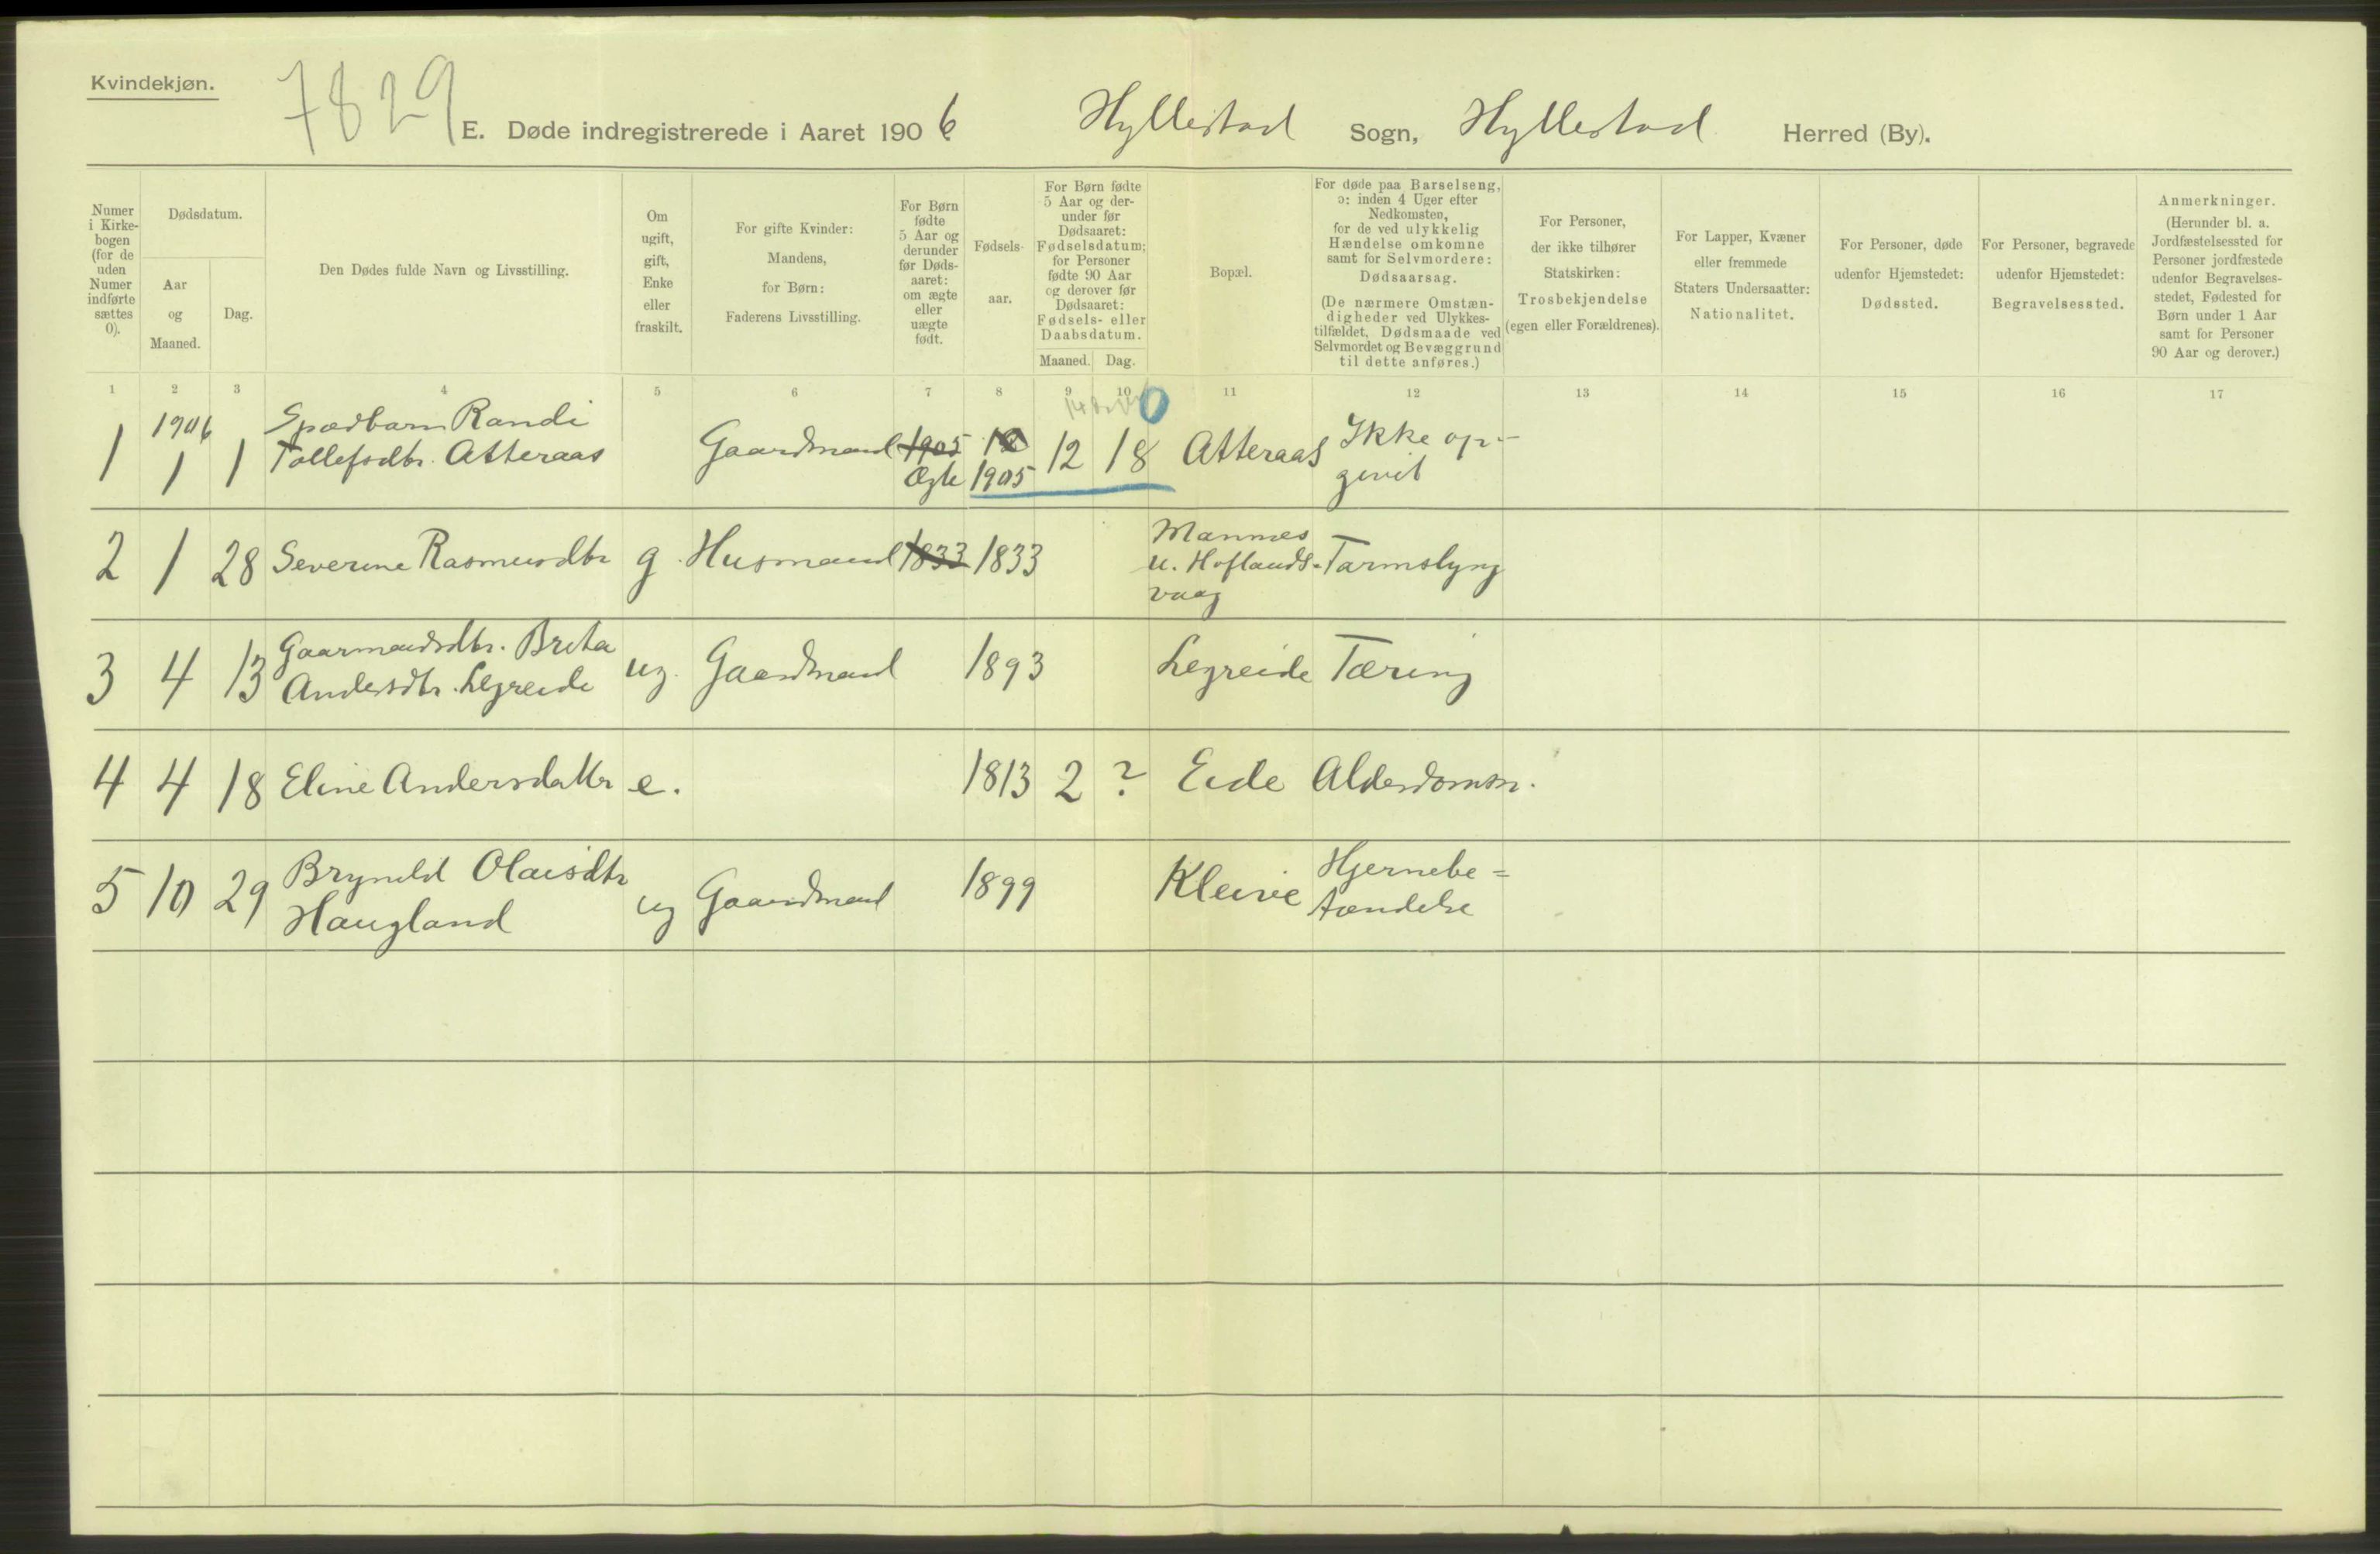 Kvindekjøn.
7829
E. Døde indregistrerede i Aaret 1906 Hyllestad Sogn, Hyllestad Herred (By).
Numer i Kirke-bogen (for de uden Numer indførte sættes 0).
Dødsdatum.
Aar og Maaned.
Dag.
Den Dødes fulde Navn og Livsstilling.
Om ugift, gift, Enke eller fraskilt.
For gifte Kvinder: Mandens, for Børn: Faderens Livsstilling.
For Børn fødte 5 Aar og derunder før Døds-aaret: om ægte eller uægte født.
Fødsels-aar.
For Børn fødte 5 Aar og der-under før Dødsaaret: Fødselsdatum; for Personer fødte 90 Aar og derover før Dødsaaret: Fødsels- eller Daabsdatum.
Maaned. Dag.
Bopæl.
For døde paa Barselseng, ɔ: inden 4 Uger efter Nedkomsten, for de ved ulykkelig Hændelse omkomne samt for Selvmordere: Dødsaarsag.
(De nærmere Omstæn-digheder ved Ulykkes-tilfældet, Dødsmaade ved Selvmordet og Bevæggrund til dette anføres.)
For Personer, der ikke tilhører Statskirken: Trosbekjendelse (egen eller Forældrenes).
For Lapper, Kvæner eller fremmede Staters Undersaatter: Nationalitet.
For Personer, døde udenfor Hjemstedet: Dødssted.
For Personer, begravede udenfor Hjemstedet: Begravelsessted.
Anmerkninger.
(Herunder bl. a. Jordfæstelsessted for Personer jordfæstede udenfor Begravelses-stedet, Fødested for Børn under 1 Aar samt for Personer 90 Aar og derover.)
1 2 3 4 5 6 7 8 9 10 11 12 13 14 15 16 17
0
1 1906 1 1 Spædbarn Randi Tollefsdtr. Atteraas Gaardmand 1905 Ægte 1905 12 18 Atteraas Ikke op-givet
2 1 28 Severine Rasmusdtr g. Husmand 1833 1833 Mannes u. Hoflands-vaag Tarmslyng
3 4 13 Gaarmandsdtr. Brita Andersdtr. Legreide ug. Gaardmand 1893 Legreide Tæring
4 4 18 Eline Andersdatter e. 1813 2 ? Eide Alderdomm.
5 10 29 Brynild Olaisdtr Haugland ug Gaardmand 1899 Kleive Hjernebe=tændelse